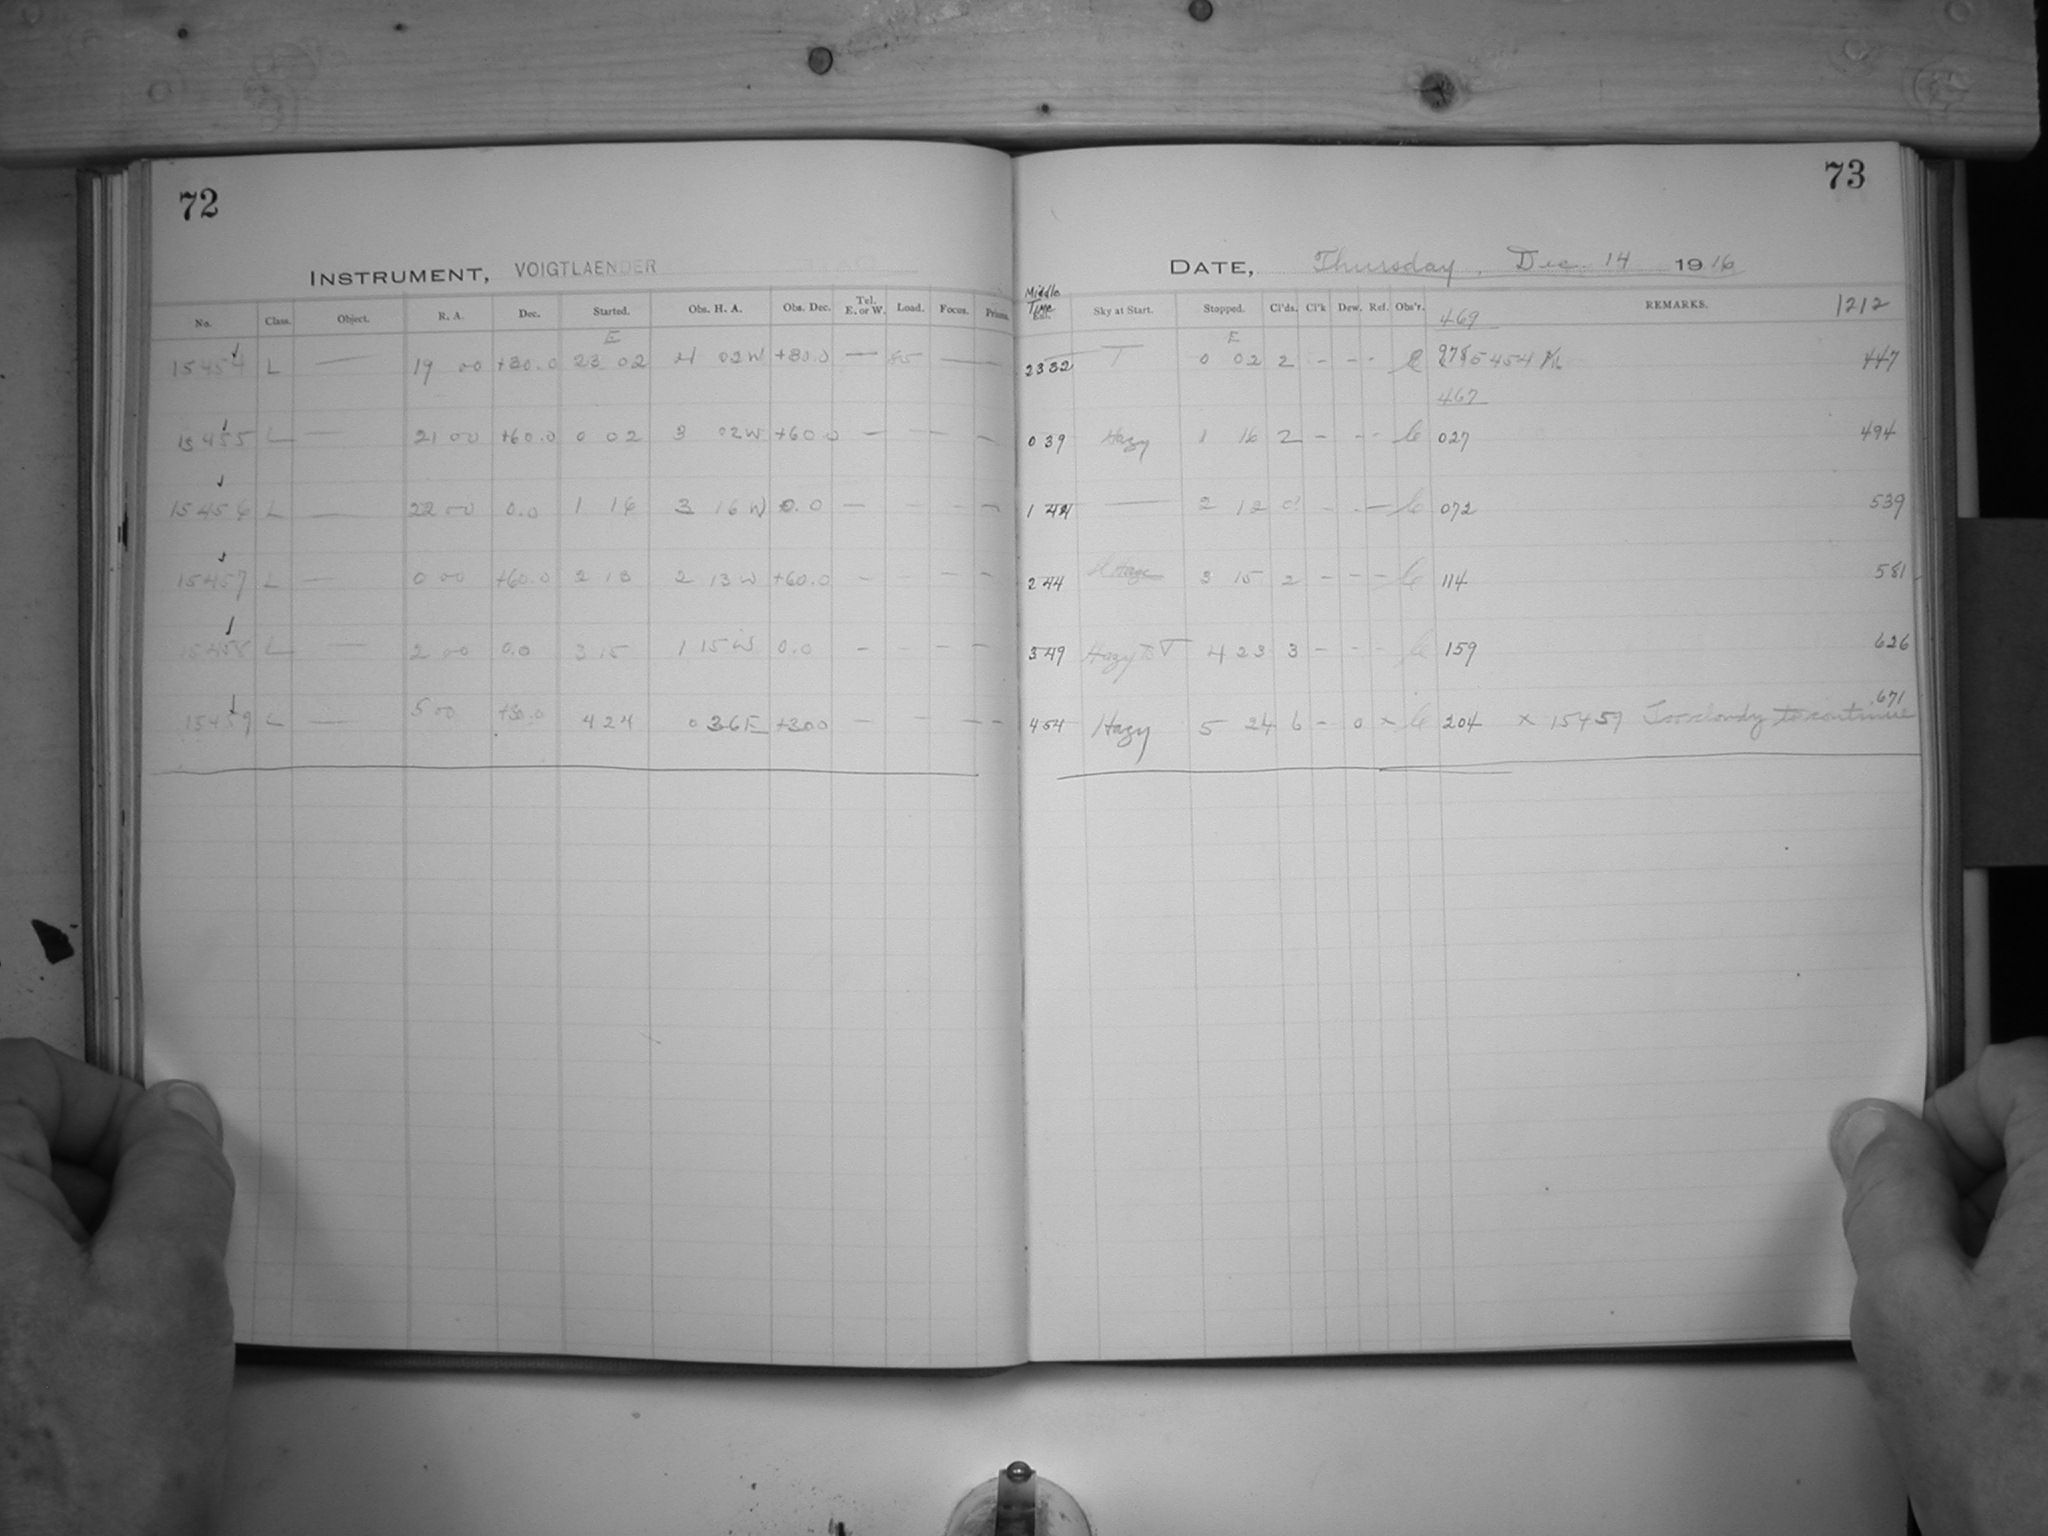 72
INSTRUMENT, VOIGTLAENDER
No. Class. Object. R. A. Dec. Started. Obs. H. A. Obs. Dec. Tel. E. or W. Load. Focus. Prisms.
E
15454 L — 19 00 +30.0 23 02 4 02W +30.0 — — —
15455 L — 21 00 +60.0 0 02 3 02W +60.0 — — — —
15456 L — 22 00 0.0 1 16 3 16W 0.0 — — — —
15457 L — 0 00 +60.0 2 13 2 13W +60.0 — — —
15458 L — 2 00 0.0 3 15 1 15W 0.0 — — — —
15459 L — 5 00 +30.0 4 24 0 36E +30.0 — — — —
73
DATE, Thursday, Dec. 14 1916
Middle Time Sky at Start. Stopped. Cl'ds. Cl'k Dew. Ref. Obs'r. REMARKS. 1212
469
E
23 32 T 0 02 2 - - - 447
467
0 39 Hazy 1 16 2 - - - 027 494
1 44 — 2 12 - - — 072 539
2 44 3 15 2 - - - 114 581
3 49 Hazy to T 4 23 3 - - - 159 626
4 54 Hazy 5 24 6 - 0 × 204 × 15459 Too cloudy to continue 671